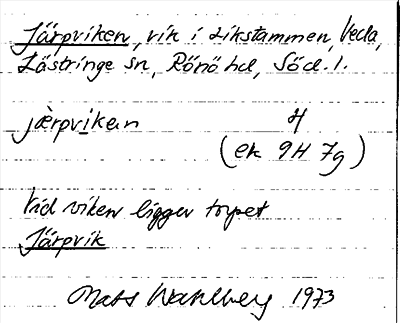 Järpviken, vik i Likstammen, Veda,
Lästringe sn, Rönö hd, Söd. l.
jæ̀rpvikan 4
(ek 9H 7g)
Vid viken ligger torpet
Järpvik
Mats Wahlberg 1973